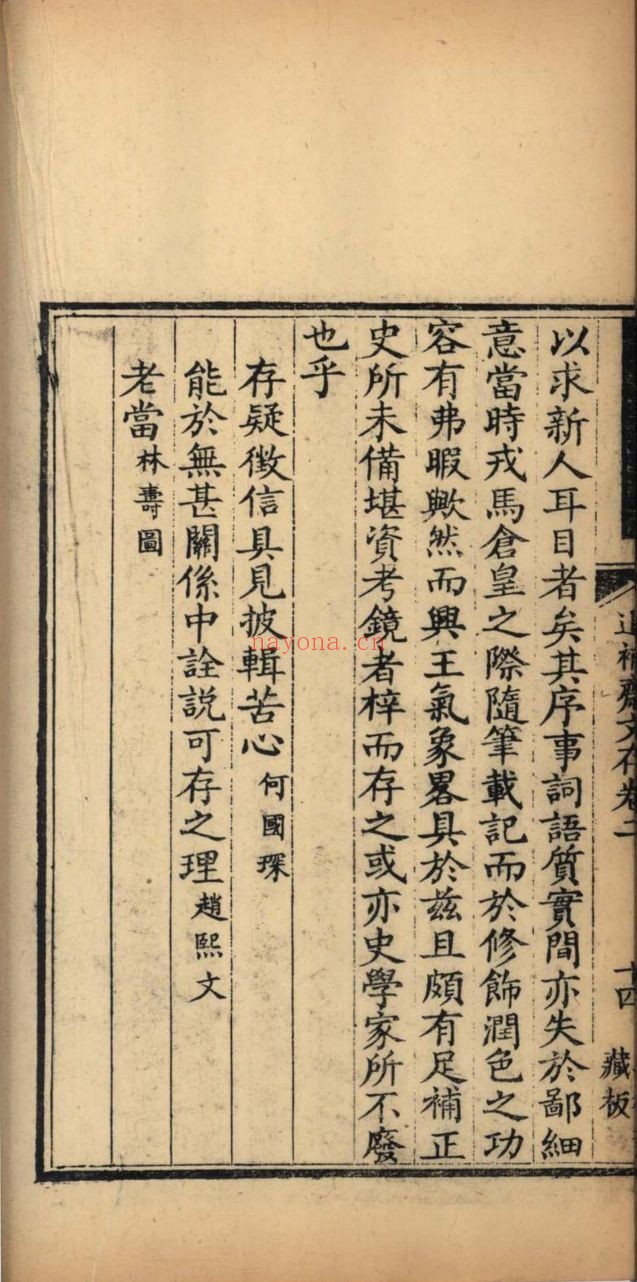 以求新人耳目者矣其序事詞語質實間亦失於鄙細
意當時戎馬倉皇之際隨筆載記而於修飾潤色之功
容有弗暇歟然而興王氣象畧具於茲且頗有足補正
史所未備堪資考鏡者梓而存之或亦史學家所不廢
也乎
存疑徵信具見披輯苦心 何國琛
能於無甚關係中詮説可存之理 趙熙文
老當 林壽圖
補齋文存卷二
十四
藏板
nayona.cn